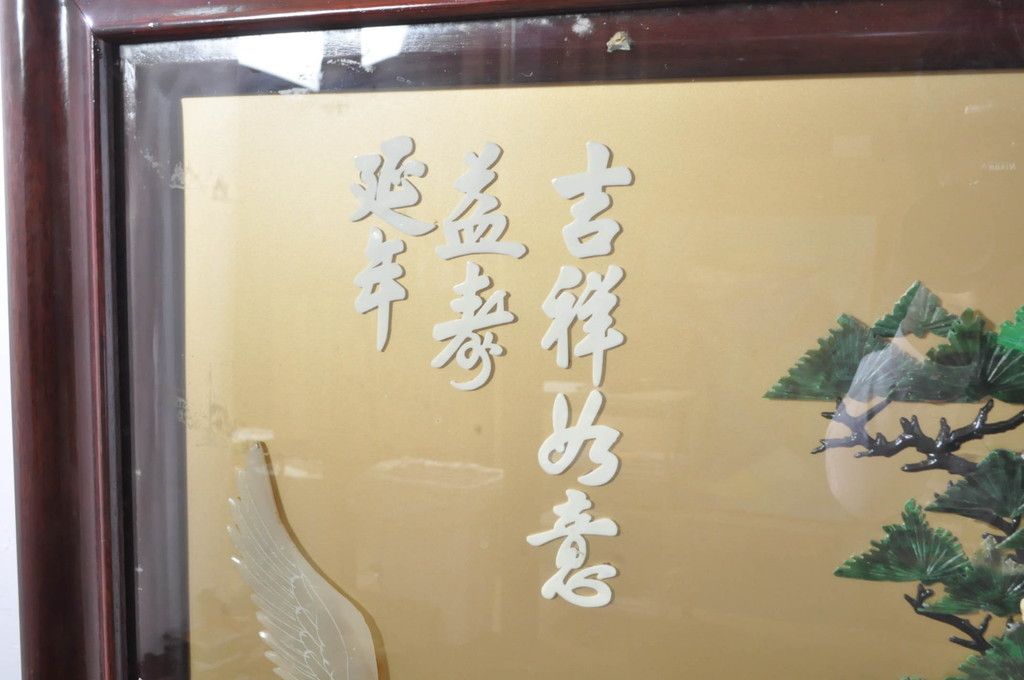 吉祥如意
益寿
延年